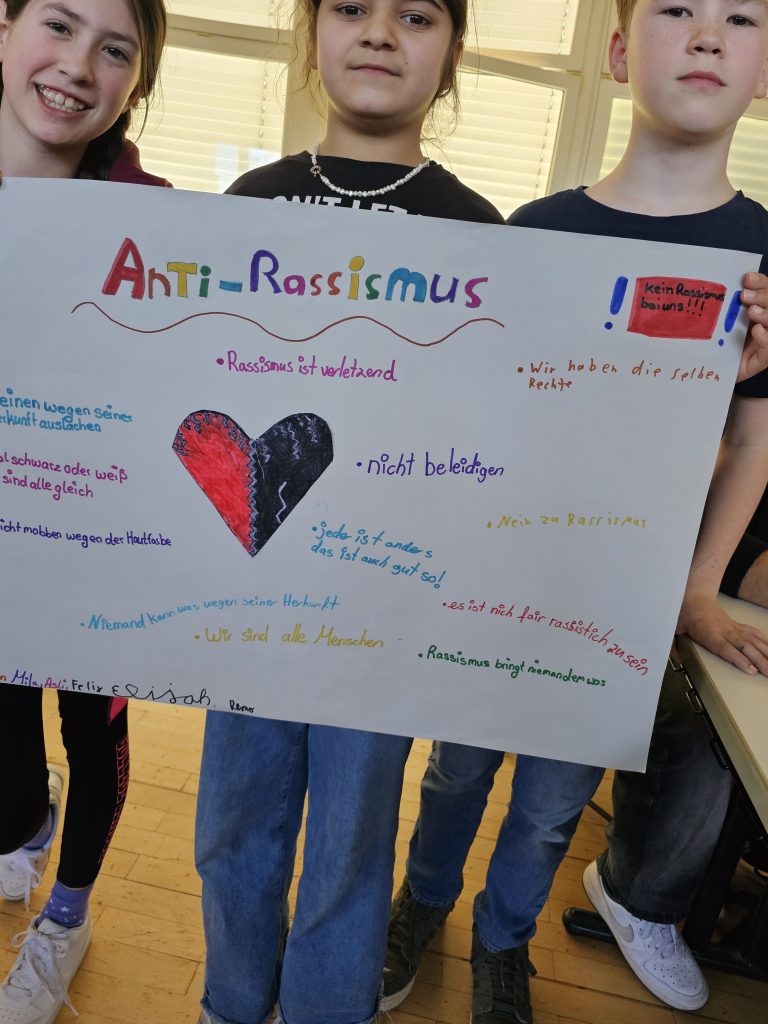 ON'T LET
Anti-Rassismus
kein Rassismus
bei uns!!!
• Rassismus ist verletzend
• Wir haben die selben
Rechte
einen wegen seiner
erkunft auslachen
al schwarz oder weiß
sind alle gleich
icht mobben wegen der Hautfarbe
• nicht beleidigen
• Nein zu Rassismus
• jede ist anders
das ist auch gut so!
• Niemand kann was wegen seiner Herkunft
• Wir sind alle Menschen
• es ist nich fair rassistich zu sein
• Rassismus bringt niemandem was
n Mila, Asli, Felix Elisah,